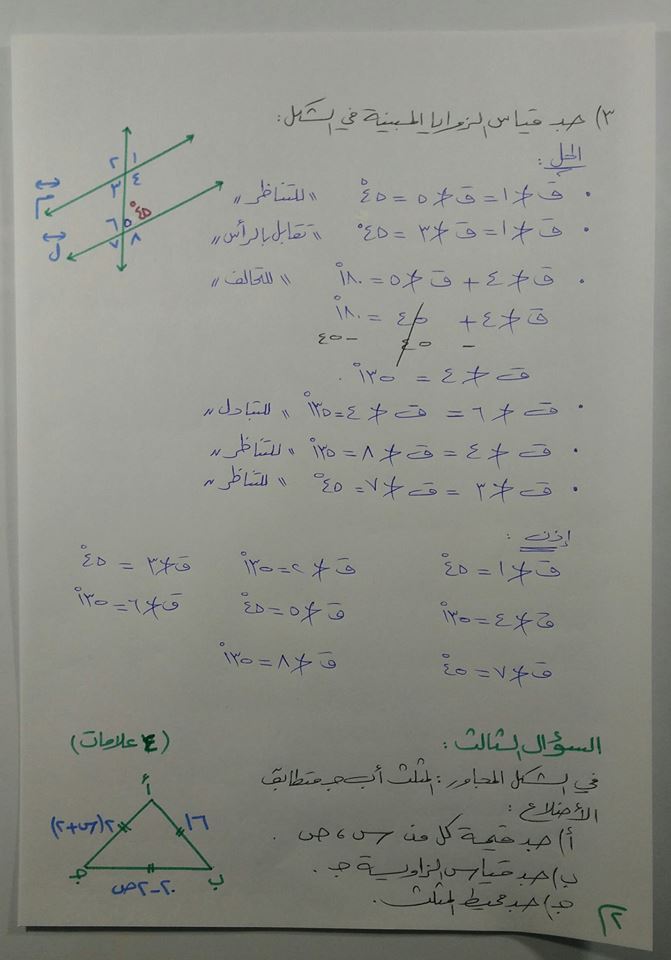 ٣) جد قياس الزوايا المبينة في الشكل:
الحل:
١ ٢ ٣ ٤ ٥ ٤٥° ٦ ٧ ٨ م ل
• ق∡١ = ق∡٥ = ٤٥° "للتناظر"
• ق∡١ = ق∡٣ = ٤٥° "تقابل بالرأس"
• ق∡٤ + ق∡٥ = ١٨٠° "للتحالف"
ق∡٤ + ٤٥ = ١٨٠°
- ٤٥ -٤٥
ق∡٤ = ١٣٥°.
• ق∡٦ = ق∡٤ = ١٣٥° "للتبادل"
• ق∡٤ = ق∡٨ = ١٣٥° "للتناظر"
• ق∡٣ = ق∡٧ = ٤٥° "للتناظر"
إذن:
ق∡١ = ٤٥° ق∡٢ = ١٣٥° ق∡٣ = ٤٥°
ق∡٤ = ١٣٥° ق∡٥ = ٤٥° ق∡٦ = ١٣٥°
ق∡٧ = ٤٥° ق∡٨ = ١٣٥°
السؤال الثالث: (٤ علامات)
في الشكل المجاور: المثلث أ ب جـ متطابق
الأضلاع:
أ) جد قيمة كل من س، ص.
ب) جد قياس الزاوية جـ.
جـ) جد محيط المثلث.
أ
٢(س+٢) ١٦
جـ ب
٢٠-٢ص
٢